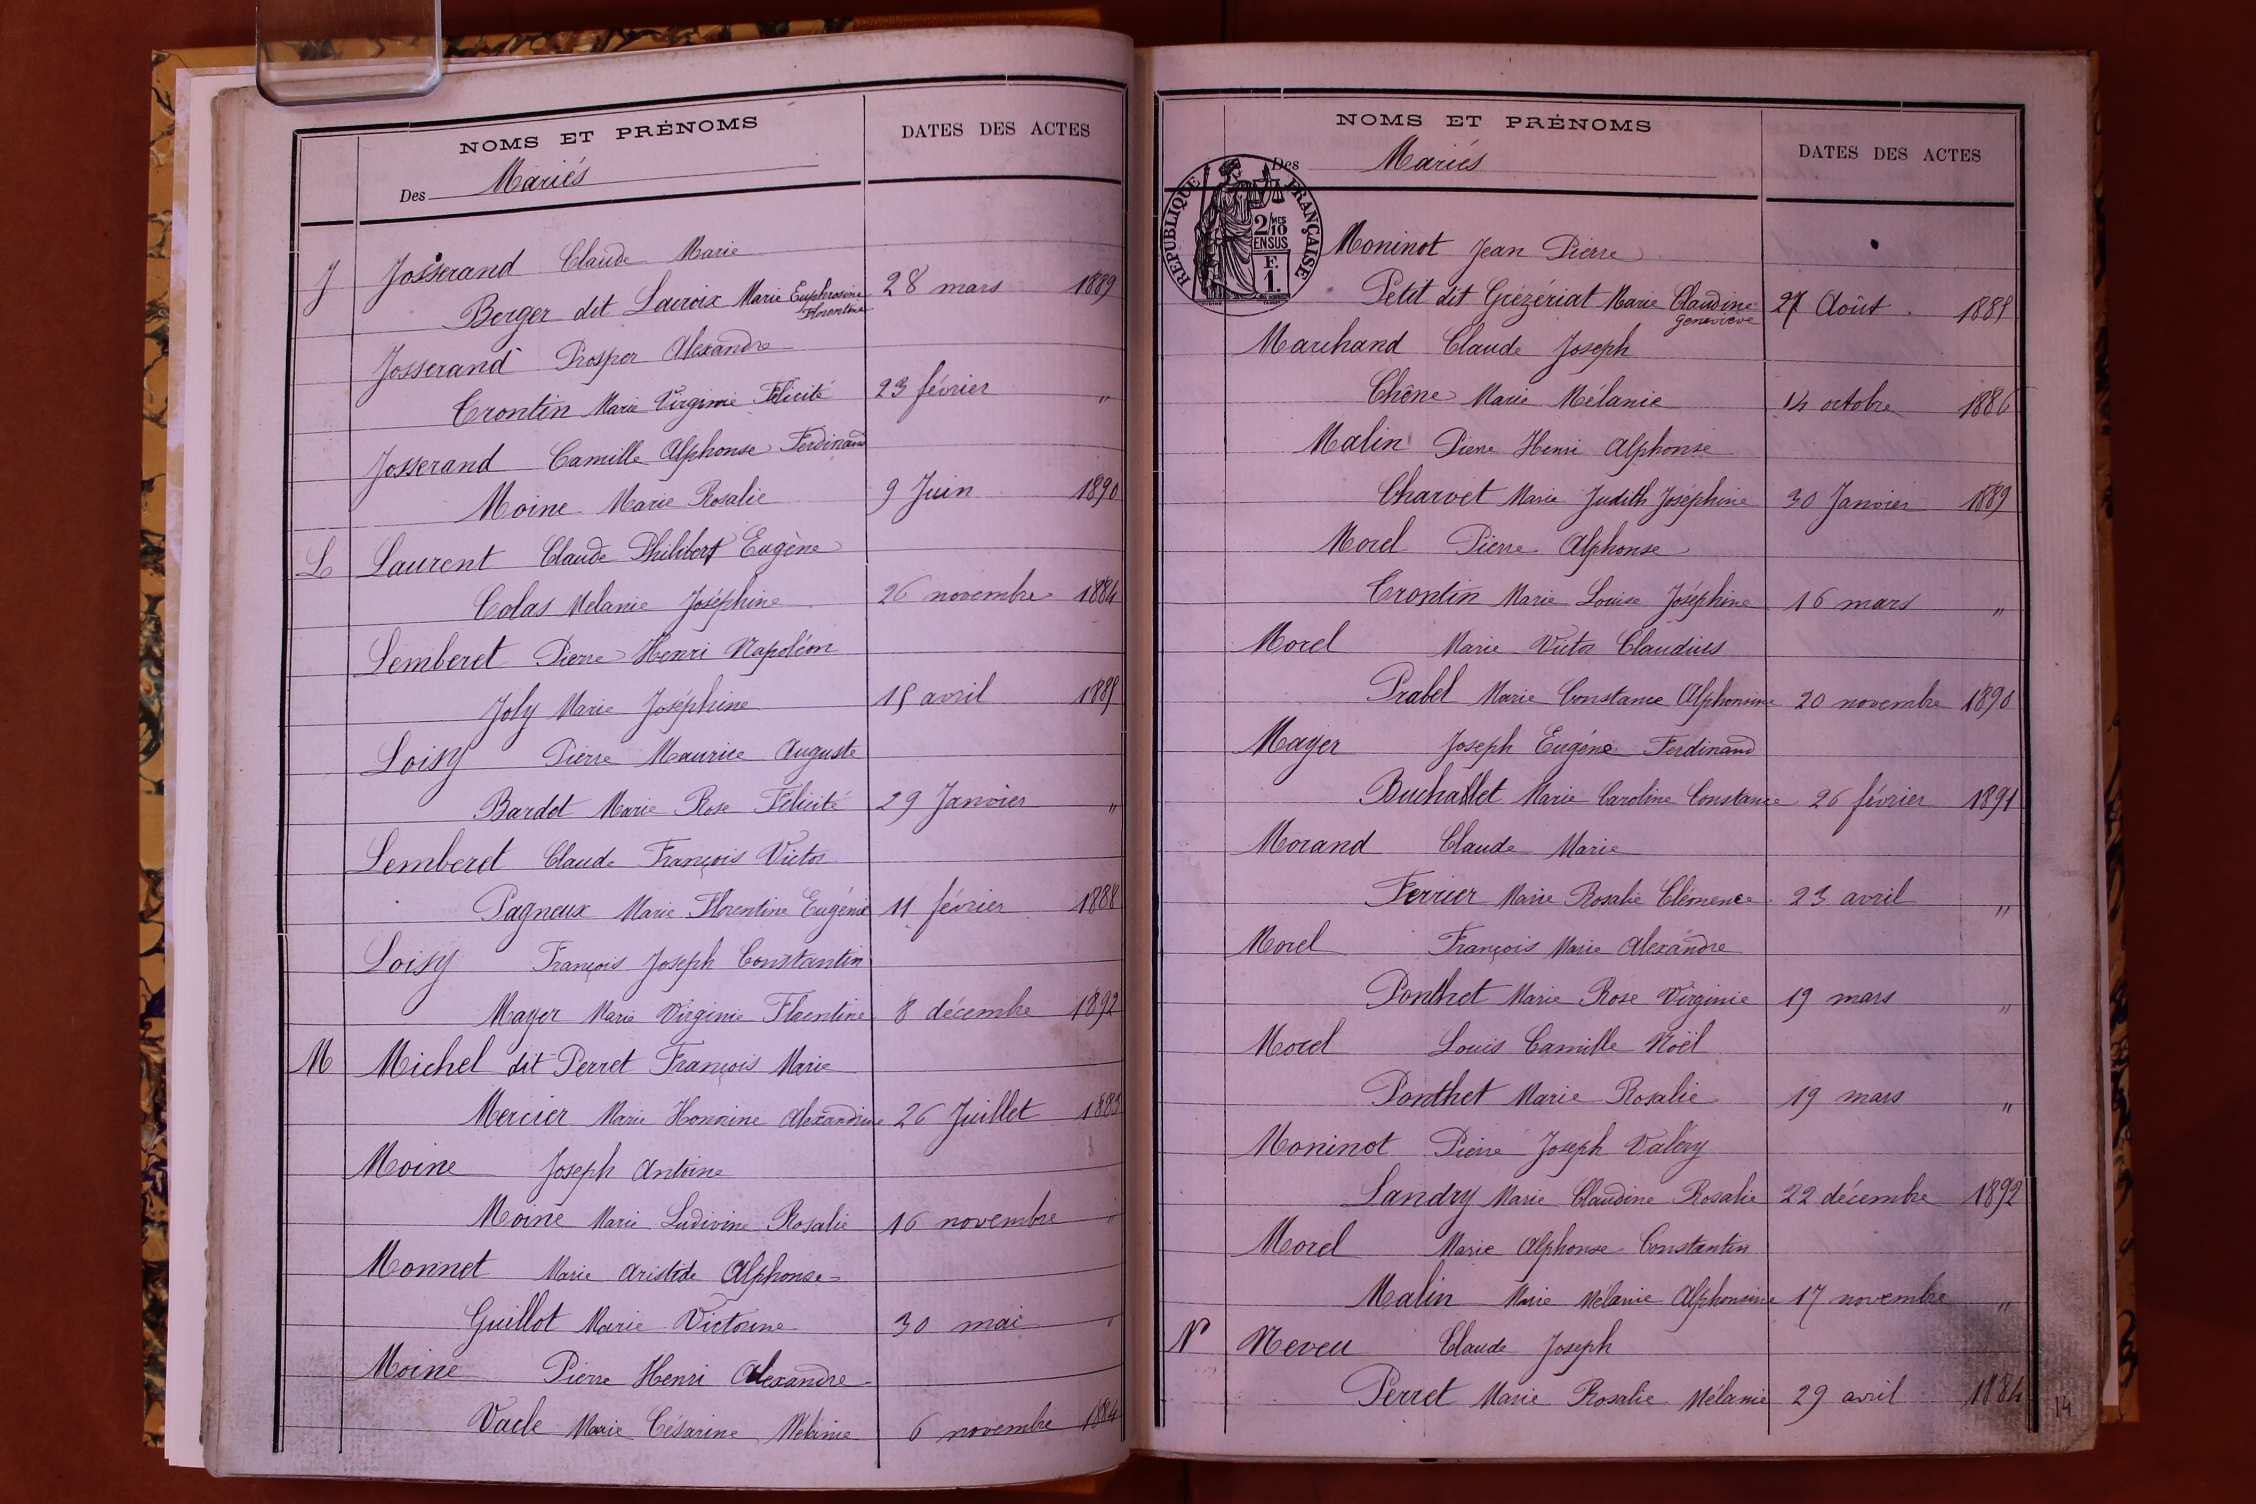 NOMS ET PRÉNOMS
DATES DES ACTES
Des Mariés
J Josserand Claude Marie
Berger dit Lacroix Marie Euphrosine 28 mars 1889
Florentine
Josserand Prosper Alexandre
Trontin Marie Virginie Félicité 23 février "
Josserand Camille Alphonse Ferdinand
Moine Marie Rosalie 9 Juin 1890
L Laurent Claude Philibert Eugène
Colas Melanie Joséphine 26 novembre 1884
Lemberet Pierre Henri Napoléon
Joly Marie Joséphine 15 avril 1885
Loisy Pierre Maurice Auguste
Bardet Marie Rose Félicité 29 Janvier "
Lemberet Claude François Victor
Pagneux Marie Florentine Eugénie 11 février 1888
Loisy François Joseph Constantin
Mayer Marie Virginie Florentine 8 décembre 1892
M Michel dit Perret François Marie
Mercier Marie Honorine Alexandrine 26 Juillet 1883
Moine Joseph Antoine
Moine Marie Ludivine Rosalie 16 novembre "
Monnet Marie Aristide Alphonse
Guillot Marie Victorine 30 mai "
Moine Pierre Henri Alexandre
Vacle Marie Césarine Mélanie 6 novembre 1884
NOMS ET PRÉNOMS
DATES DES ACTES
Des Mariés
RÉPUBLIQUE FRANÇAISE
2/10 MES
EN SUS
F.
1.
Moninot Jean Pierre
Petit dit Grézériat Marie Claudine 27 Août 1885
Geneviève
Marchand Claude Joseph
Chêne Marie Mélanie 14 octobre 1886
Malin Pierre Henri Alphonse
Charvet Marie Judith Joséphine 30 Janvier 1889
Morel Pierre Alphonse
Trontin Marie Louise Joséphine 16 mars "
Morel Marie Victor Claudius
Prabel Marie Constance Alphonsine 20 novembre 1890
Mayer Joseph Eugène Ferdinand
Buchallet Marie Caroline Constance 26 février 1891
Morand Claude Marie
Ferrier Marie Rosalie Clémence 23 avril "
Morel François Marie Alexandre
Ponthet Marie Rose Virginie 19 mars "
Morel Louis Camille Noël
Ponthet Marie Rosalie 19 mars "
Moninot Pierre Joseph Valéry
Landry Marie Claudine Rosalie 22 décembre 1892
Morel Marie Alphonse Constantin
Malin Marie Mélanie Alphonsine 17 novembre "
N Neveu Claude Joseph
Perret Marie Rosalie Mélanie 29 avril 1884
14